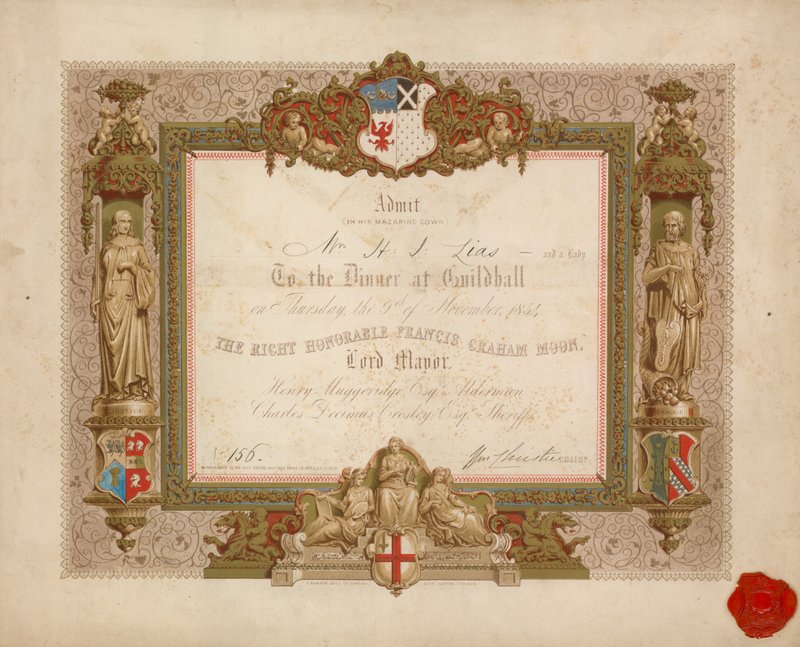 Admit
IN HIS MAZARINE GOWN
Mr. H. J. Lias — and a Lady
To the Dinner at Guildhall
on Thursday, the 9th of November, 1854
THE RIGHT HONORABLE FRANCIS GRAHAM MOON,
Lord Mayor.
Henry Muggeridge, Esqr. Alderman
Charles Decimus Crosley, Esqr. Sheriffs
No. 156.
Wm Christie CHAIRN.
JUSTICE